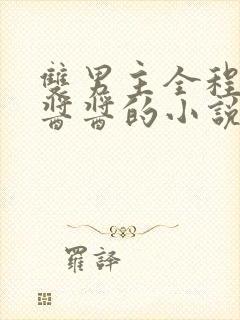 雙男主全程
醬醬的小說
羅譯